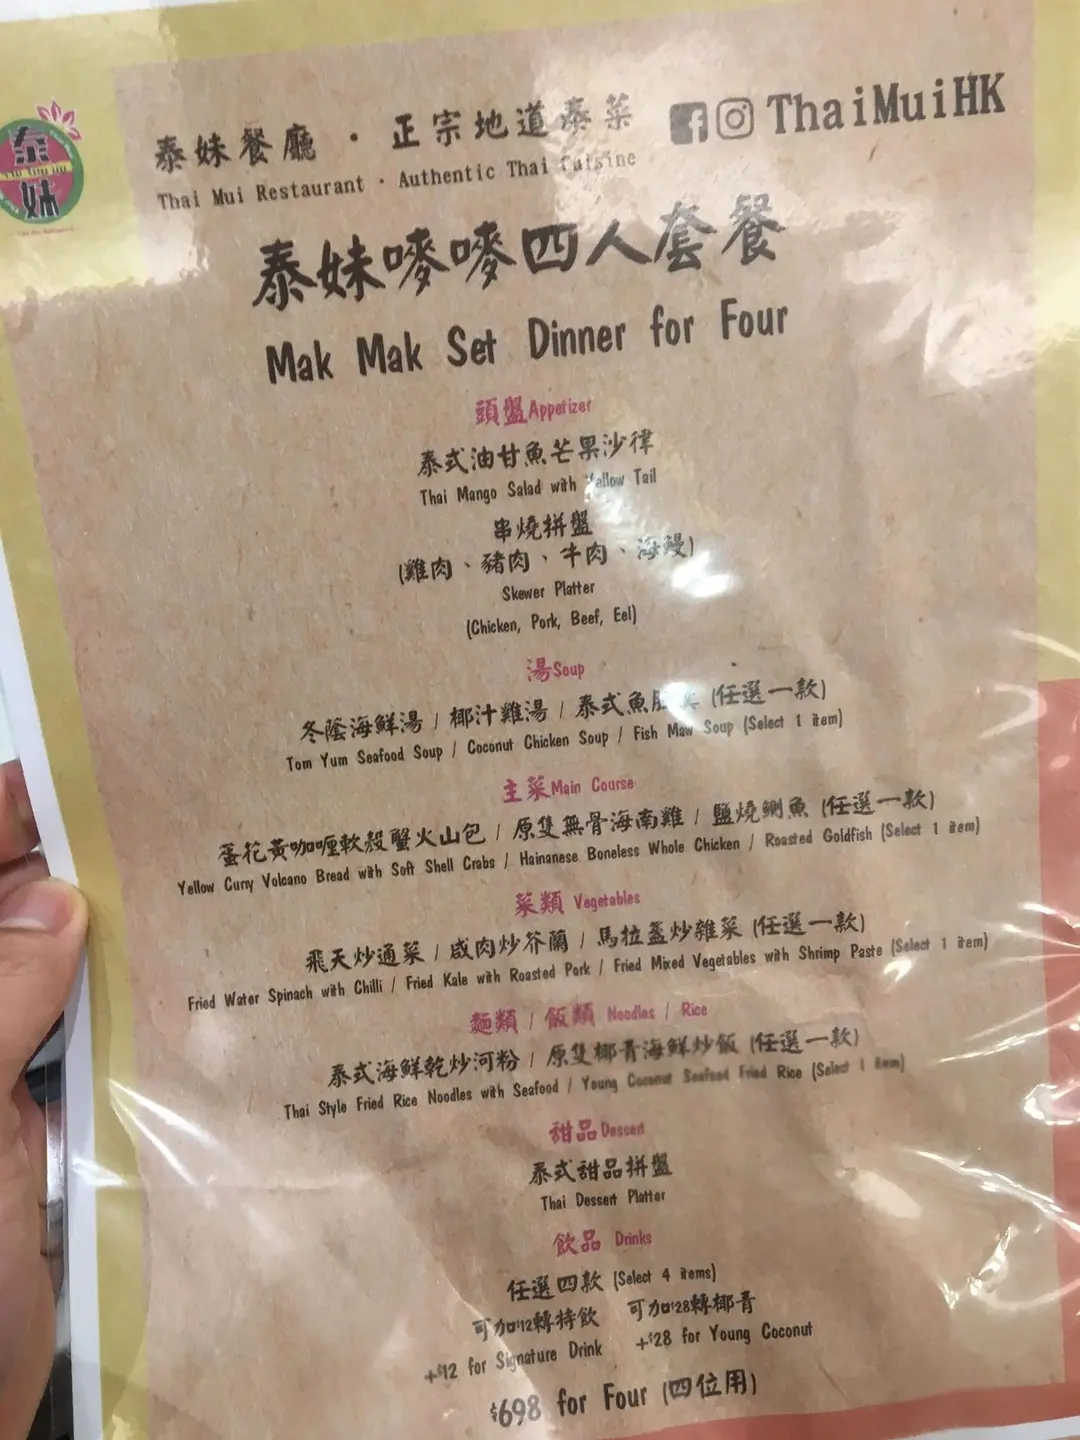 泰妹
泰妹餐廳・正宗地道泰菜
ThaiMuiHK
Thai Mui Restaurant · Authentic Thai Cuisine
泰妹嘜嘜四人套餐
Mak Mak Set Dinner for Four
頭盤Appetizer
泰式油甘魚芒果沙律
Thai Mango Salad with Yellow Tail
串燒拼盤
(雞肉、豬肉、牛肉、海鰻)
Skewer Platter
(Chicken, Pork, Beef, Eel)
湯Soup
冬蔭海鮮湯 / 椰汁雞湯 / 泰式魚肚羹 (任選一款)
Tom Yum Seafood Soup / Coconut Chicken Soup / Fish Maw Soup (Select 1 item)
主菜Main Course
蛋花黃咖喱軟殼蟹火山包 / 原隻無骨海南雞 / 鹽燒鰂魚 (任選一款)
Yellow Curry Volcano Bread with Soft Shell Crabs / Hainanese Boneless Whole Chicken / Roasted Goldfish (Select 1 item)
菜類 Vegetables
飛天炒通菜 / 咸肉炒芥蘭 / 馬拉盞炒雜菜 (任選一款)
Fried Water Spinach with Chilli / Fried Kale with Roasted Pork / Fried Mixed Vegetables with Shrimp Paste (Select 1 item)
麵類 / 飯類 Noodles / Rice
泰式海鮮乾炒河粉 / 原隻椰青海鮮炒飯 (任選一款)
Thai Style Fried Rice Noodles with Seafood / Young Coconut Seafood Fried Rice (Select 1 item)
甜品Dessert
泰式甜品拼盤
Thai Dessert Platter
飲品 Drinks
任選四款 (Select 4 items)
可加$12轉特飲 可加$28轉椰青
+$12 for Signature Drink +$28 for Young Coconut
$698 for Four (四位用)